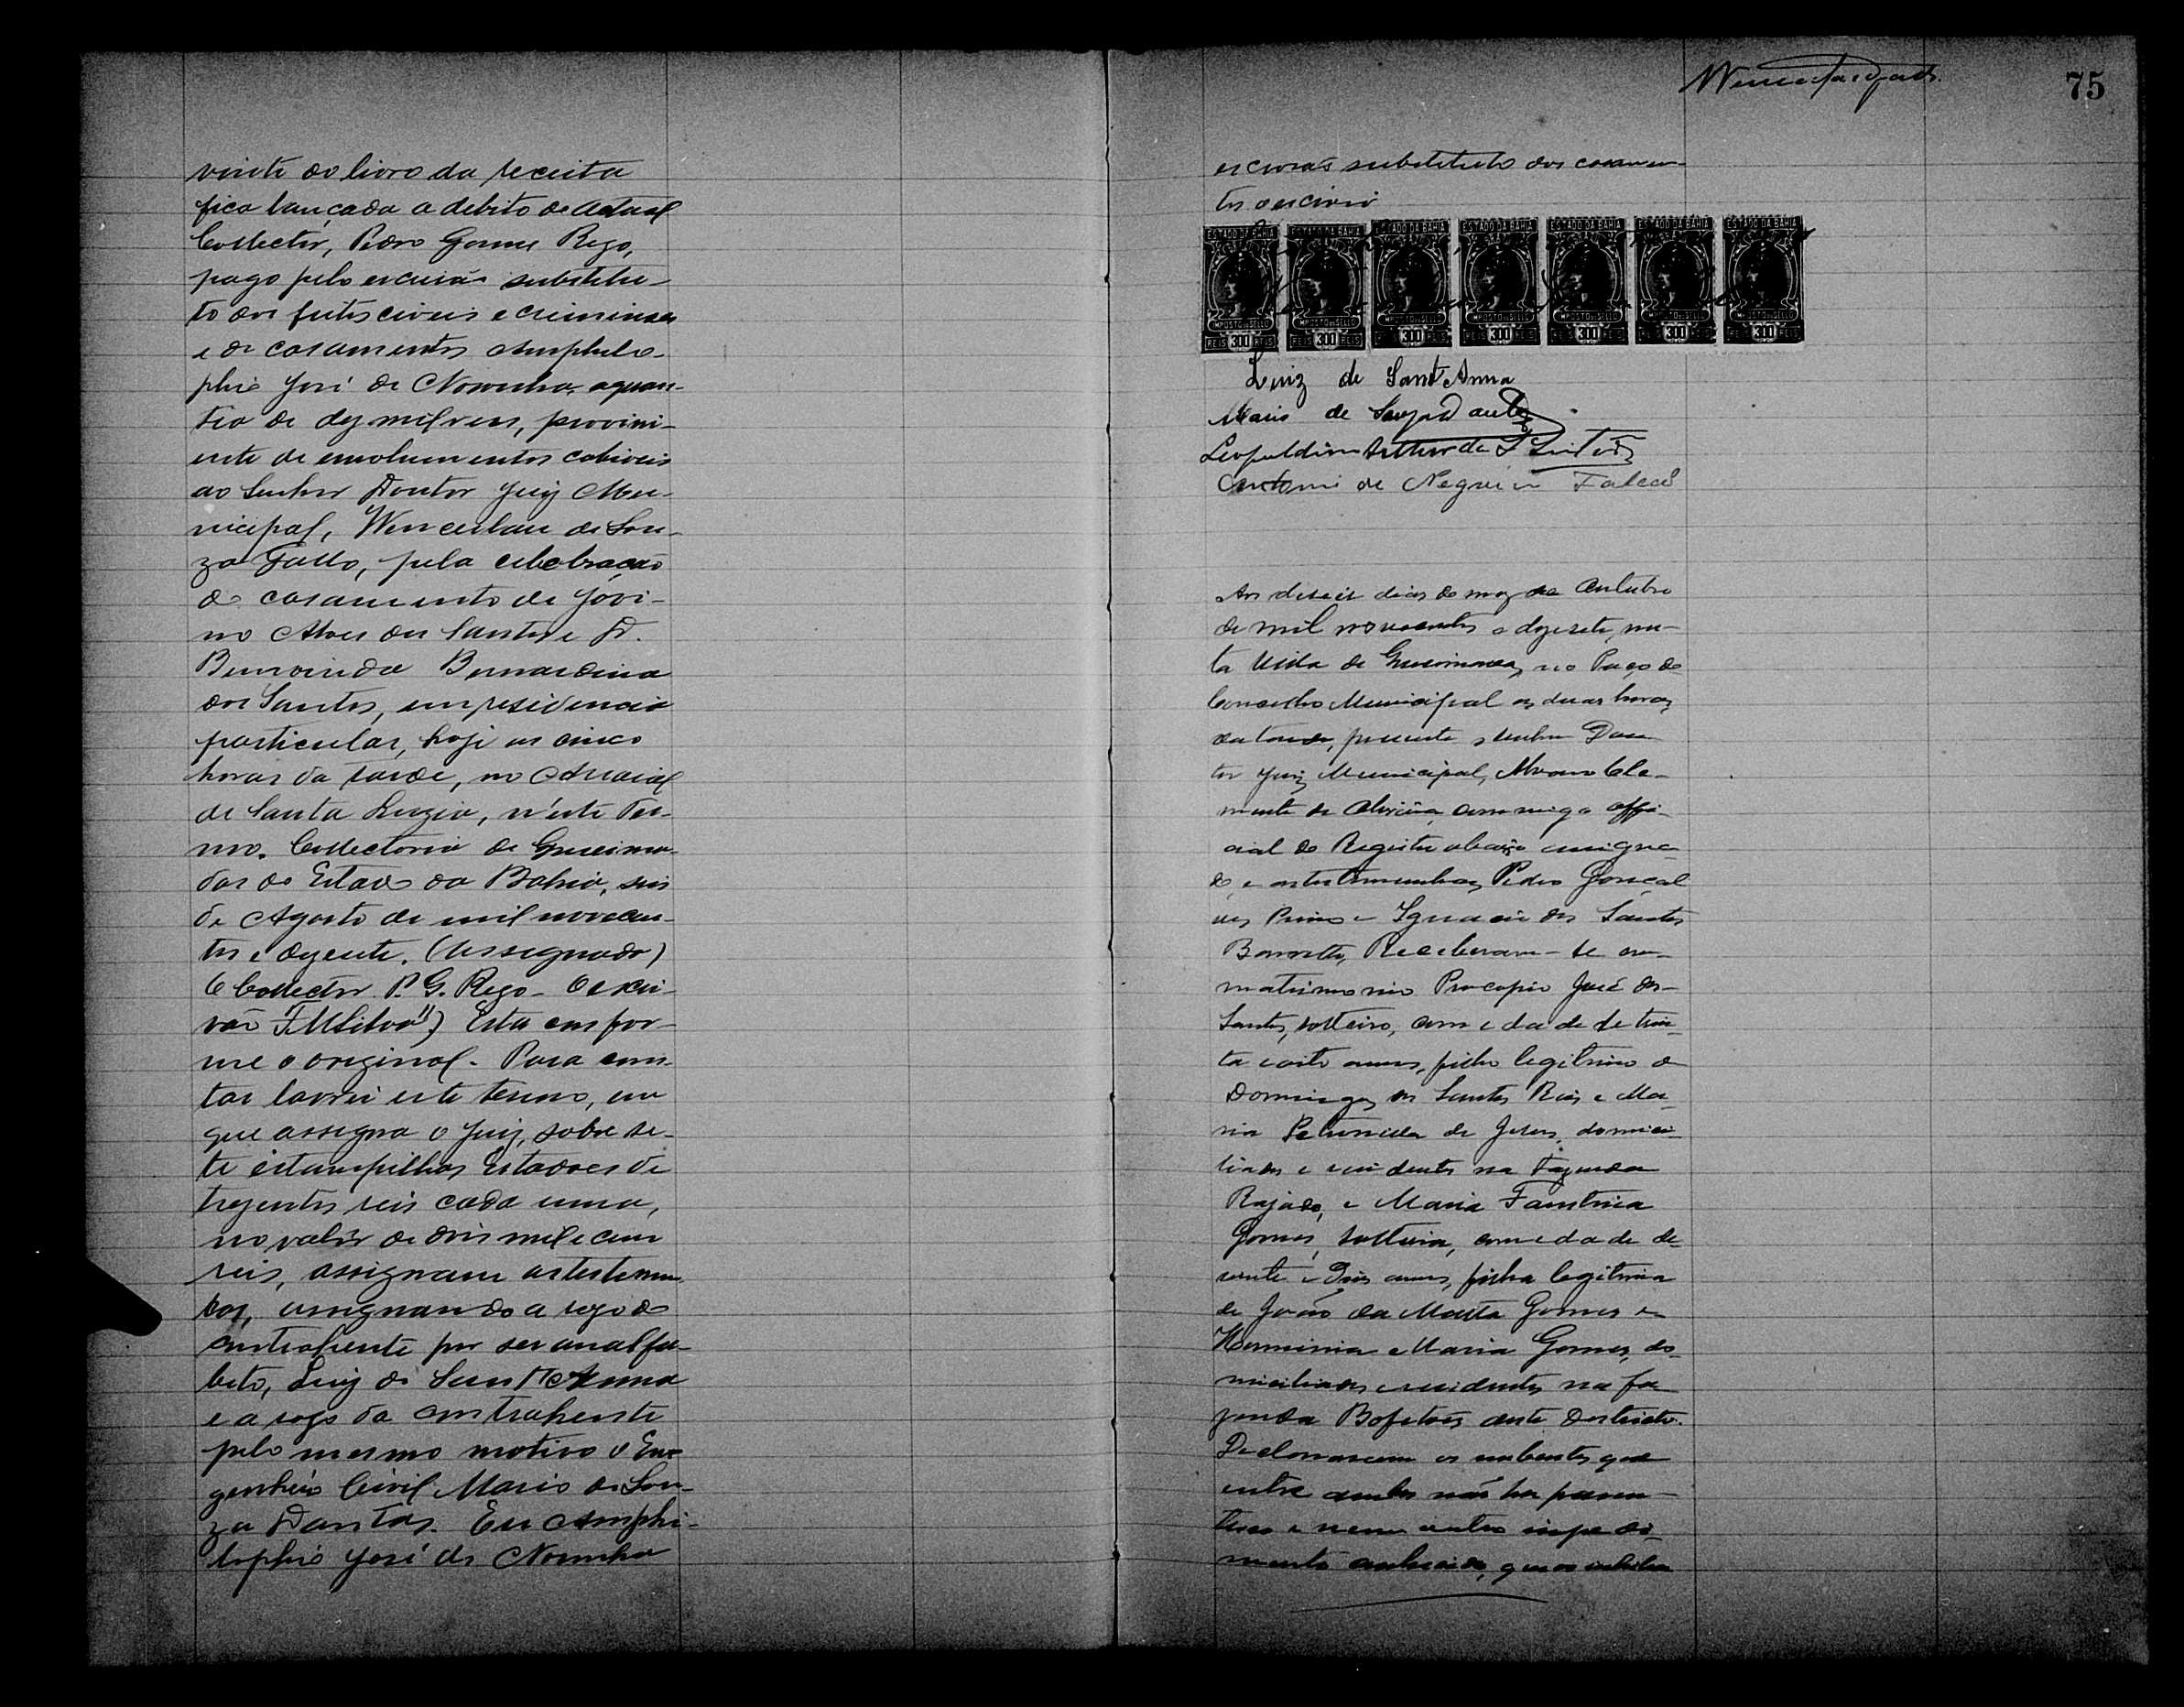 75
vinte do livro da receita
fica lançada a debito do actual
Collector, Pedro Gomes Rego,
pago pelo escrivão substitu-
to dos feitos civeis e criminaes
e de casamentos Amphilo-
phio José de Noronha, a quan-
tia de dez mil reis, provini-
ente de emolumentos cabiveis
ao Senhor Doutor Juiz Mu-
nicipal, Wenceslau de Sou-
za Gallo, pela celebração
do casamento de Jovi-
no Alves dos Santos e D.
Bemvinda Bernardina
dos Santos, em residencia
particular, hoje as cinco
horas da tarde, no Arraial
de Santa Luzia, n'este Ter-
mo. Collectoria de Queima-
das do Estado da Bahia, seis
de Agosto de mil novecen-
tos e dezesete. (Assignado)
O Collector P. G. Rego - O escri-
vão F. M Silva") Esta confor-
me o original. Para cons-
tar lavrei este termo, em
que assigna o Juiz, sobre se-
te estampilhas Estadoes de
trezentos reis cada uma,
no valor de dois mil e cem
reis, assignam as testemu-
has, assignando a rogo do
contrahente por ser analfa-
beto, Luiz de Sant'Anna
e a rogo da contrahente
pelo mesmo motivo o En-
genheiro Civil Mario de Sou-
za Dantas. Eu Amphi-
lophio José de Noronha
escrivão substituto dos casamen-
tos o escrivi
ESTADO DA BAHIA ESTADO DA BAHIA ESTADO DA BAHIA ESTADO DA BAHIA ESTADO DA BAHIA ESTADO DA BAHIA ESTADO DA BAHIA
IMPOSTO DO SELLO IMPOSTO DO SELLO IMPOSTO DO SELLO IMPOSTO DO SELLO IMPOSTO DO SELLO IMPOSTO DO SELLO IMPOSTO DO SELLO
REIS 300 REIS REIS 300 REIS REIS 300 REIS REIS 300 REIS REIS 300 REIS REIS 300 REIS REIS 300 REIS
Luiz de Sant'Anna
Mario de Souza Dantas
Leopoldino Arthur da S
Antonio de Negreiro Falcão
Aos deseis dias do mez de Outubro
de mil novecentos e dezesete, nes-
ta Villa de Queimadas, no Paço do
Conselho Municipal as duas horas
da tarde, presente o Senhor Dou-
tor Juiz Municipal, Alvaro Cle-
mente de Oliveira, commigo offi-
cial do Registro abaixo assigna-
do, e as testemunhas Pedro Gonçal
ves Primo e Ignacio dos Santos
Barretto, Receberam-se em
matrimonio Procopio José dos
Santos, solteiro, com edade de trin-
ta e oito annos, filho legitimo de
Domingos dos Santos Reis e Ma-
ria Petronilla de Jesus, domici-
liados e residentes na Fazenda
Rajado, e Maria Faustina
Gomes, solteira, com edade de
vinte e dois annos, filha legitima
de João da Matta Gomes e
Herminia Maria Gomes, do-
miciliados e residentes na fa-
zenda Bofetões deste Destricto.
Declararam os nubentes que
entre ambos não ha paren-
tesco e nem outro impedi-
mento conhecido, que os inhiba